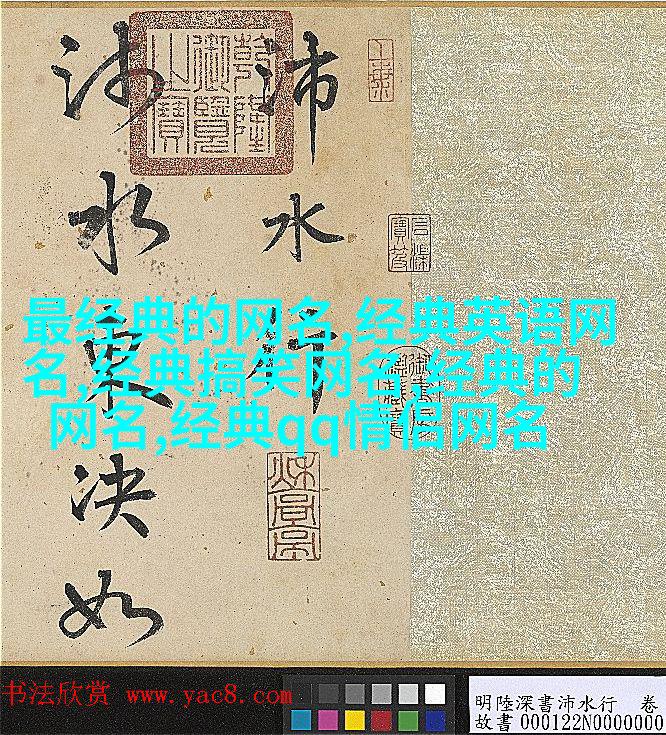 沛水行
沛水東決如
乾隆
御覽
之寶
最经典的网名,经典英语网
名,经典搞笑网名,经典的
网名,经典qq情侣网名
书法欣赏 www.yac8.com
明陸深書沛水行 卷
故書000122N0000000